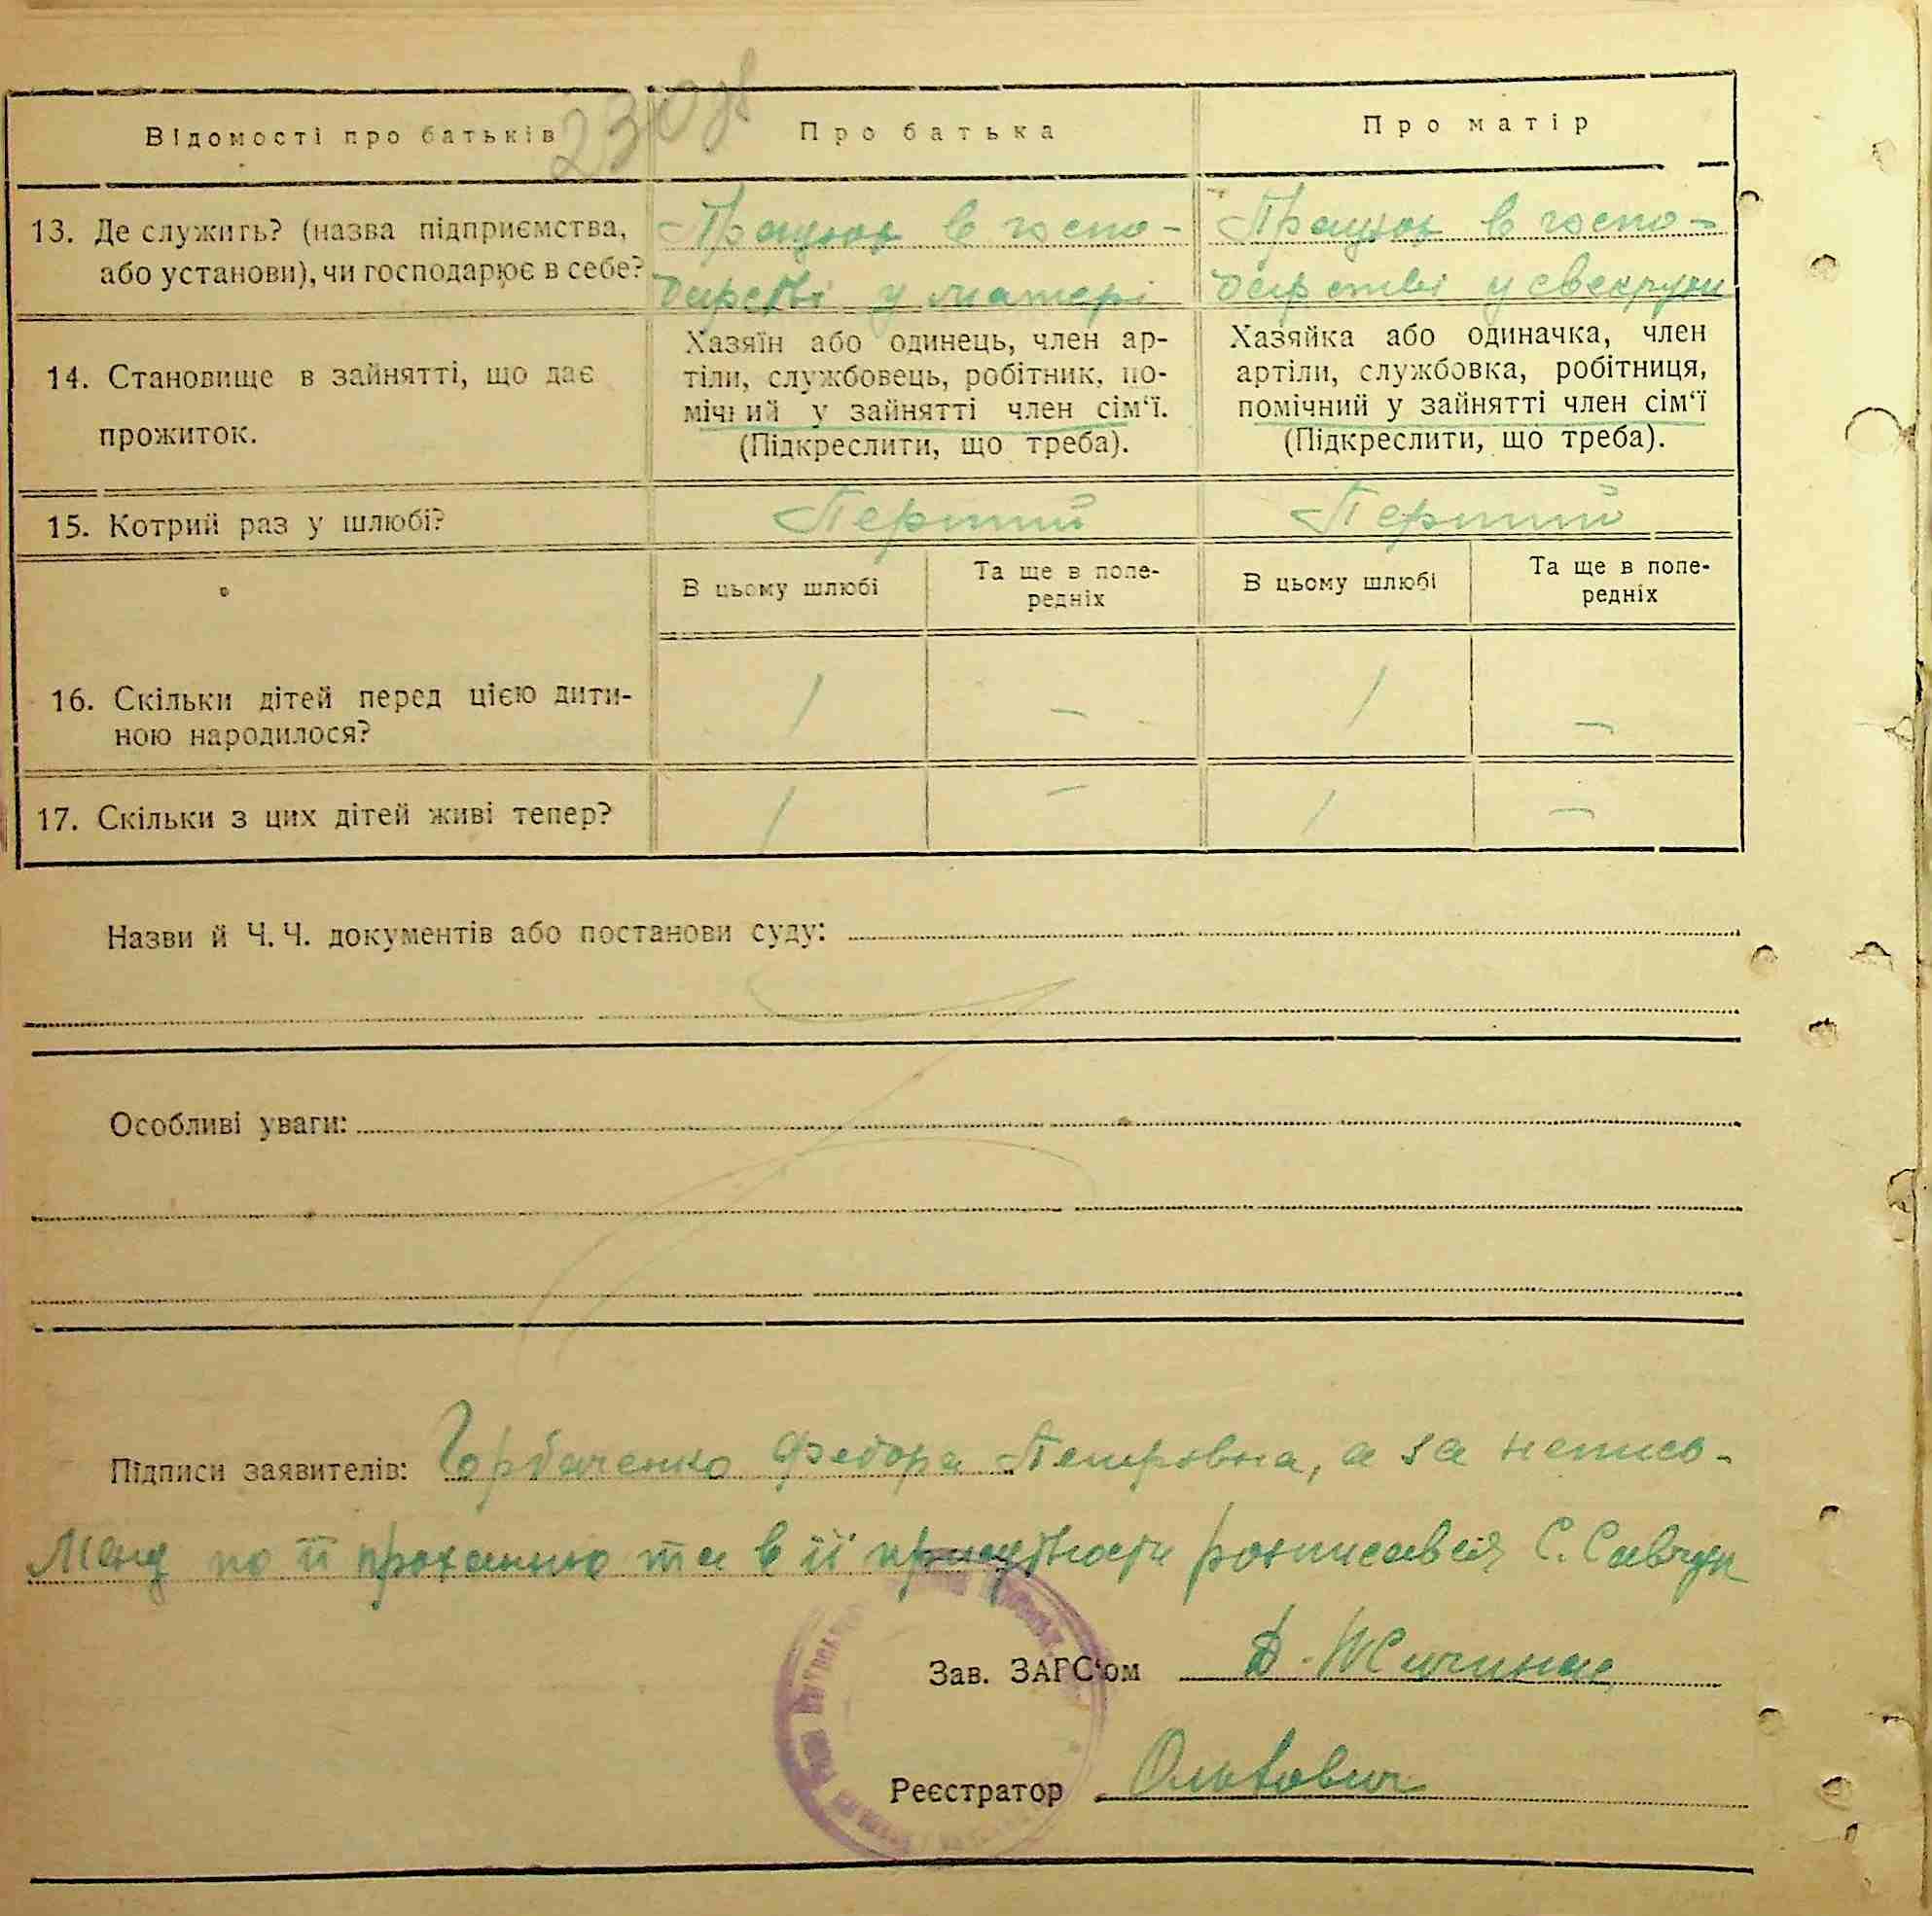 230 зв
Відомості про батьків
Про батька
Про матір
13. Де служить? (назва підприємства,
або установи), чи господарює в себе?
Працює в госпо-
дарстві у матері
Працює в госпо-
дарстві у свекрухи
14. Становище в зайнятті, що дає
прожиток.
Хазяїн або одинець, член ар-
тіли, службовець, робітник, по-
мічний у зайнятті член сім‘ї.
(Підкреслити, що треба).
Хазяйка або одиначка, член
артіли, службовка, робітниця,
помічний у зайнятті член сім‘ї
(Підкреслити, що треба).
15. Котрий раз у шлюбі?
Перший
Перший
В цьому шлюбі
Та ще в попе-
редніх
В цьому шлюбі
Та ще в попе-
редніх
16. Скільки дітей перед цією дити-
ною народилося?
1
-
1
-
17. Скільки з цих дітей живі тепер?
1
-
1
-
Назви й Ч. Ч. документів або постанови суду:
Особливі уваги:
Підписи заявителів: Горбаченко Федора Петровна, а за неписо-
менну по її проханню та в її присутности розписався С. Савчук
Зав. ЗАГС‘ом
Реєстратор